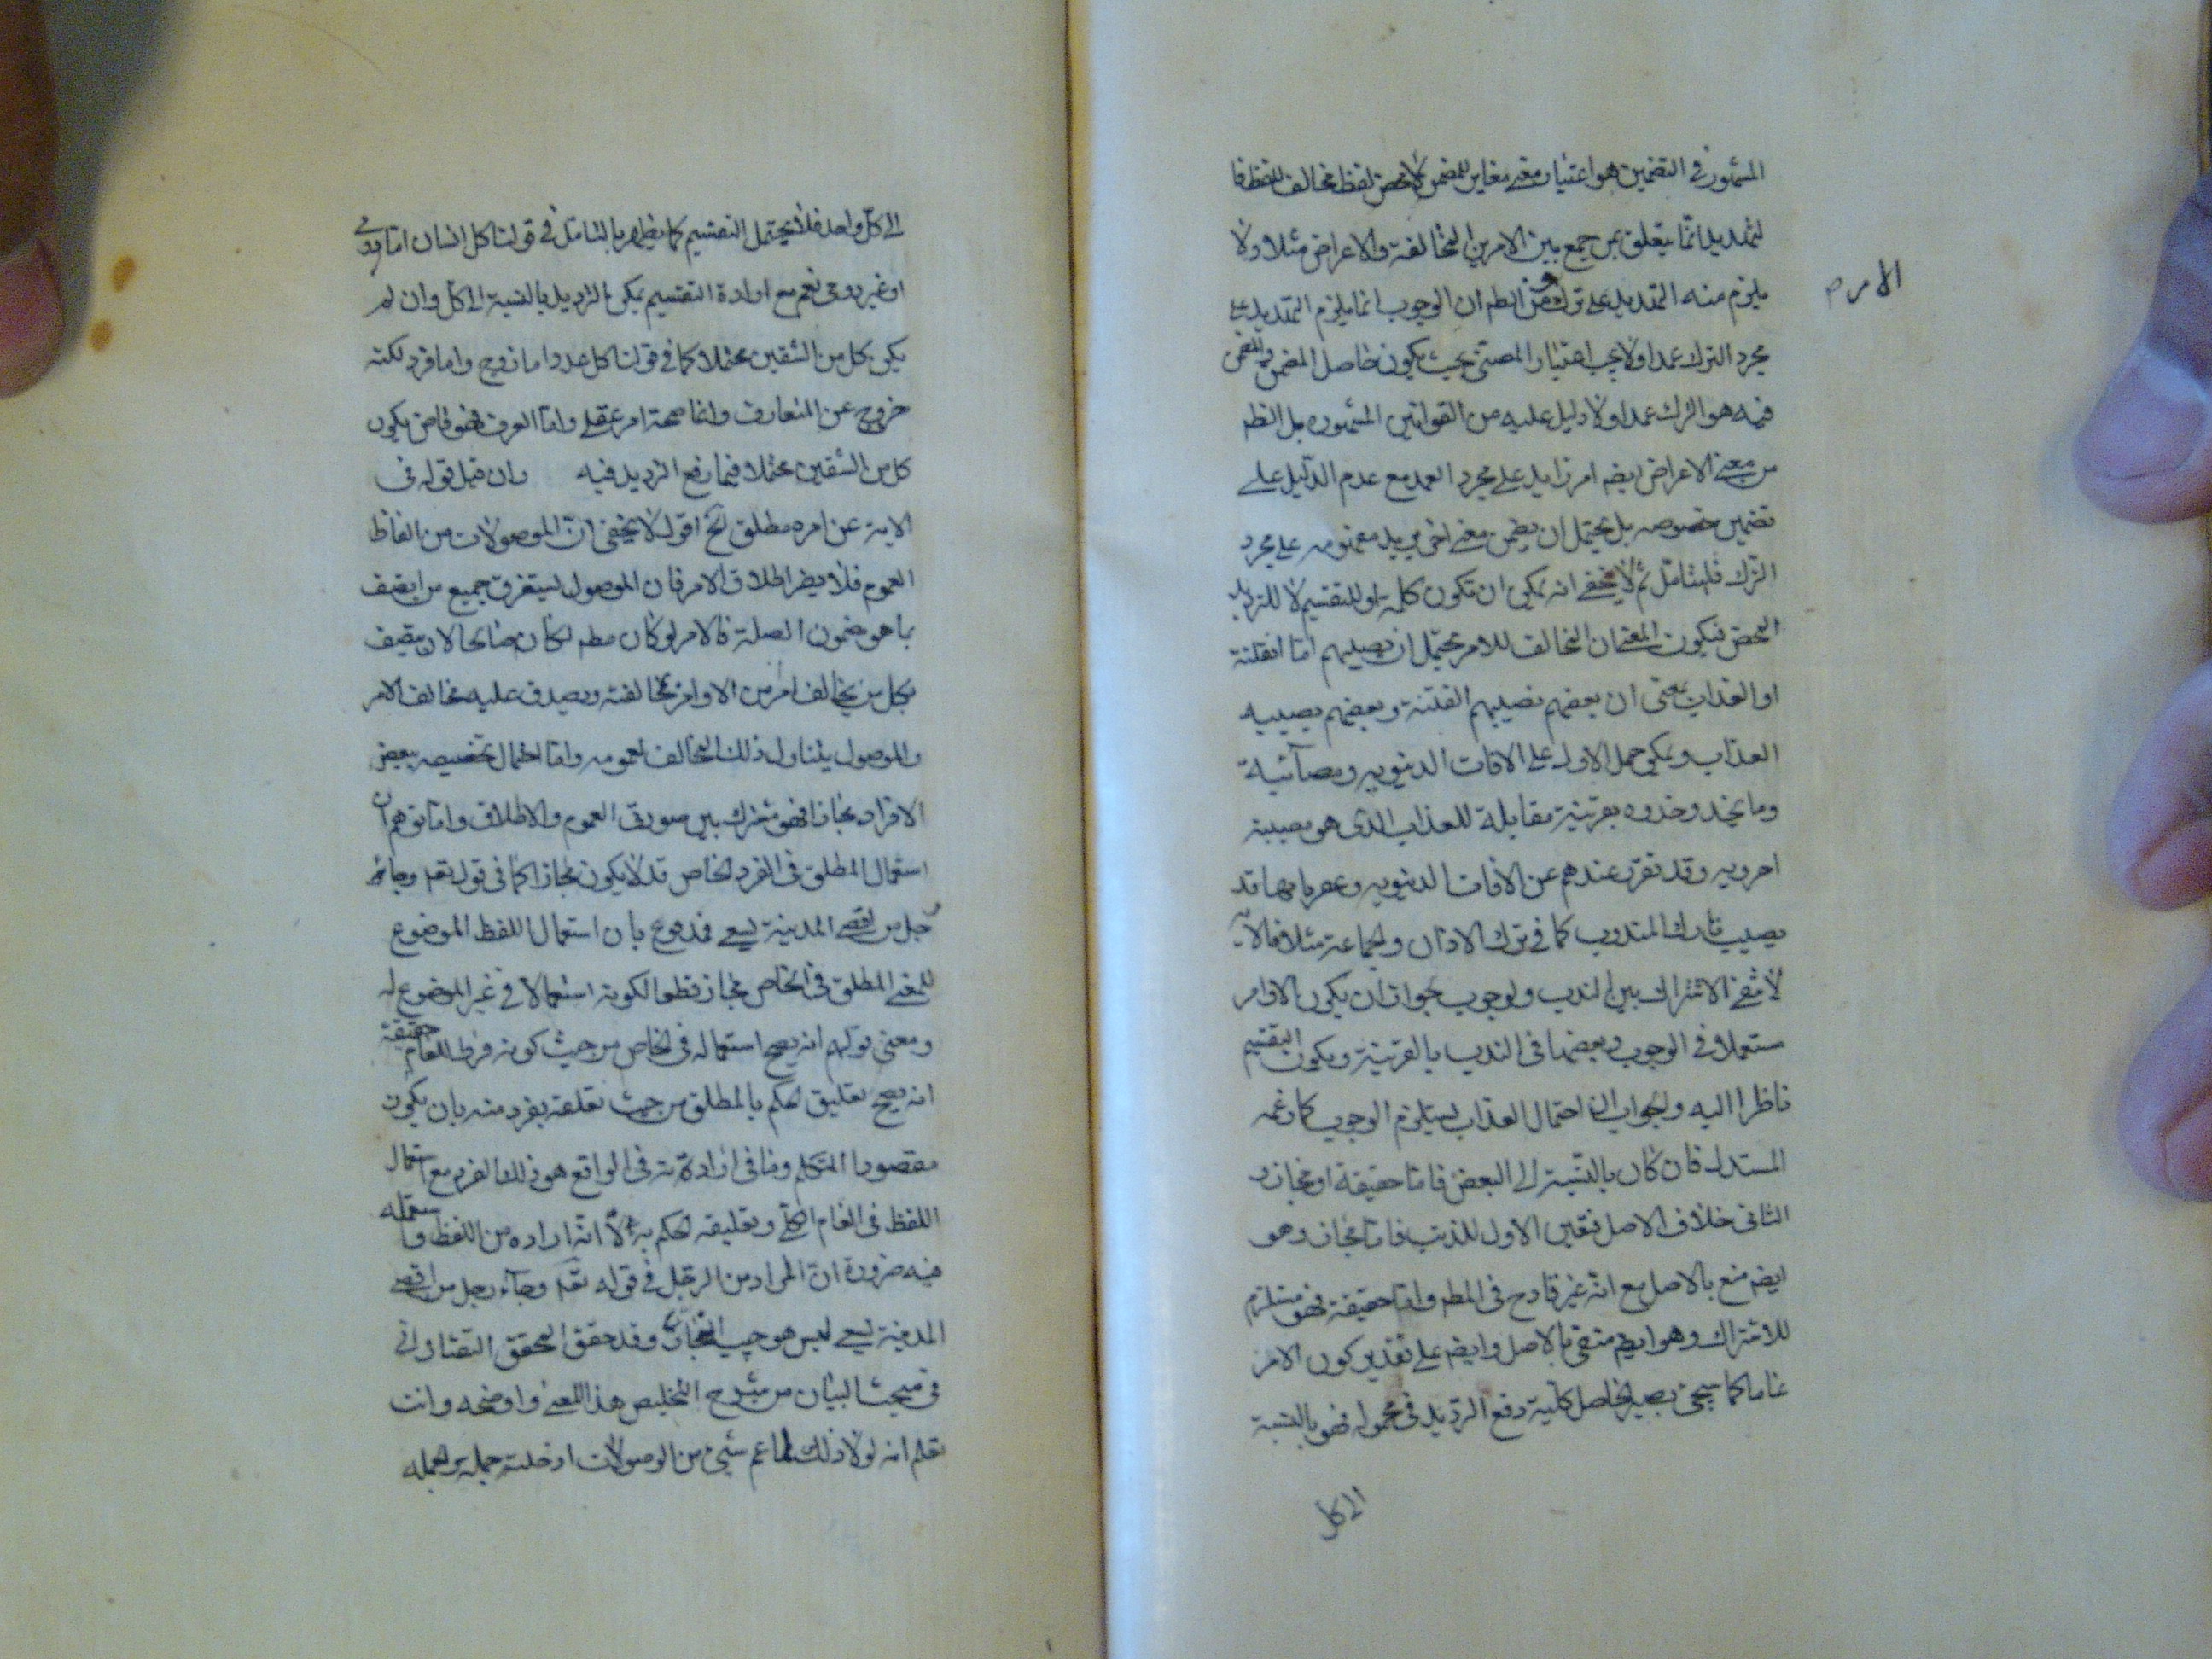 المشهور في التضمين هو اعتبار معنى مغاير للمضمن لا محض لفظ مخالف للفظ فا
لتهديد انما يتعلق بمن جمع بين الامرين المخالفة والاعراض مثلا ولا
يلزم منه التهديد على ترك ان الوجوب انما يلزم التهديد على
مجرد الترك عمدا ولا يجب اعتبار المعنى بحيث يكون حاصل المضمن والمضمن
فيه هو الترك عمدا ولا دليل عليه من القوانين المشهوره بل الظم
من معنى الاعراض ايضا امر زايد على مجرد العمد مع عدم الدليل على
تضمين خصوصه بل يحتمل ان يضمن معنى اخر يزيد مفهومه على مجرد
الترك فليتامل ثم لا يخفى انه يمكن ان تكون كلمة او للتقسيم لا للترديد
المحض فيكون المعنى ان المخالف للامر يحتمل ان يصيبهم اما الفتنة
او العذاب بمعنى ان بعضهم تصيبهم الفتنة وبعضهم يصيبه
العذاب ويمكن حمل الاول على الافات الدنيويه ومصائبه
وما يحذو حذوه بقرينة مقابلة للعذاب الذى هو مصيبة
اخرويه وقد تقرر عندهم عن الافات الدنيويه وغيرها قد
يصيب تارك المندوب كما في ترك الاذان والجماعة مثلا فالاية
لا تنفى الاشتراك بين الندب والوجوب لجواز ان يكون الاوامر
مستعملا في الوجوب وبعضها في الندب بالقرينة ويكون التقسيم
ناظرا اليه والجواب ان احتمال العذاب يستلزم الوجوب كما زعمه
المستدل فان كان بالنسبة الى البعض فاما حقيقة او مجاز و
الثاني خلاف الاصل فتعين الاول للندب فاما مجاز وهو
ايضا منع بالاصل مع انه غير قادح في المطم واما حقيقة فهو مستلزم
للاشتراك وهو ايضا منتفى بالاصل وايضا على تقدير كون الامر
عاما كما سيجئ يصير الحاصل كلية وقع الترديد في محموله فهو بالنسبة
الى كل
الى كل واحد فلا يحتمل التقسيم كما يظهر بالتامل في قولنا كل انسان اما رومى
او غير رومى نعم مع ارادة التقسيم يمكن الترديد بالنسبة الى كل وان لم
يكن كل من الشقين محتملا كما في قولنا كل عدد اما زوج واما فرد لكنه
خروج عن المتعارف وانما صحة امر عقلى واما العرف فهو قاض بكون
كل من الشقين محتملا فيما وقع الترديد فيه وان قيل قوله في
الاية عن امره مطلق الخ اقول لا يخفى ان الموصولات من الفاظ
العموم فلا يضر اطلاق الامر فان الموصول يستغرق جميع من اتصف
بما هو مضمون الصلة فالامر لو كان مطم لكان صالحا لان يتصف
بكل من يخالف امر من الاوامر بمخالفته ويصدق عليه مخالف الامر
والموصول يتناول ذلك المخالف لعمومه واما احتمال تخصيصه ببعض
الافراد مجازا فهو مشترك بين صورتى العموم والاطلاق واما توهم ان
استعمال المطلق في الفرد الخاص قد لا يكون مجازا كما في قوله تعم وجاء
رجل من اقصى المدينة يسعى فمدفوع بان استعمال اللفظ الموضوع
للمعنى المطلق في الخاص مجاز قطعا لكونه استعمالا في غير الموضوع له
ومعنى قولهم انه يصح استعماله في الخاص من حيث كونه فردا للعام حقيقة
انه يصح تعليق الحكم بالمطلق من حيث تعلقه بفرد منه بان يكون
مقصود المتكلم وما في ارادته في الواقع هو ذلك الفرد مع استعمال
اللفظ في العام الكلى وتعليقه الحكم به لا انه اراده من اللفظ واستعمله
فيه ضرورة ان المراد من الرجل في قوله تعم وجاء رجل من اقصى
المدينة يسعى ليس هو حبيب النجار وقد حقق المحقق التفتازانى
في مبحث البيان من شرح التخليص هذا المعنى واوضحه وانت
تعلم انه لولا ذلك لما عم شئ من الموصولات اذ خلت جملة